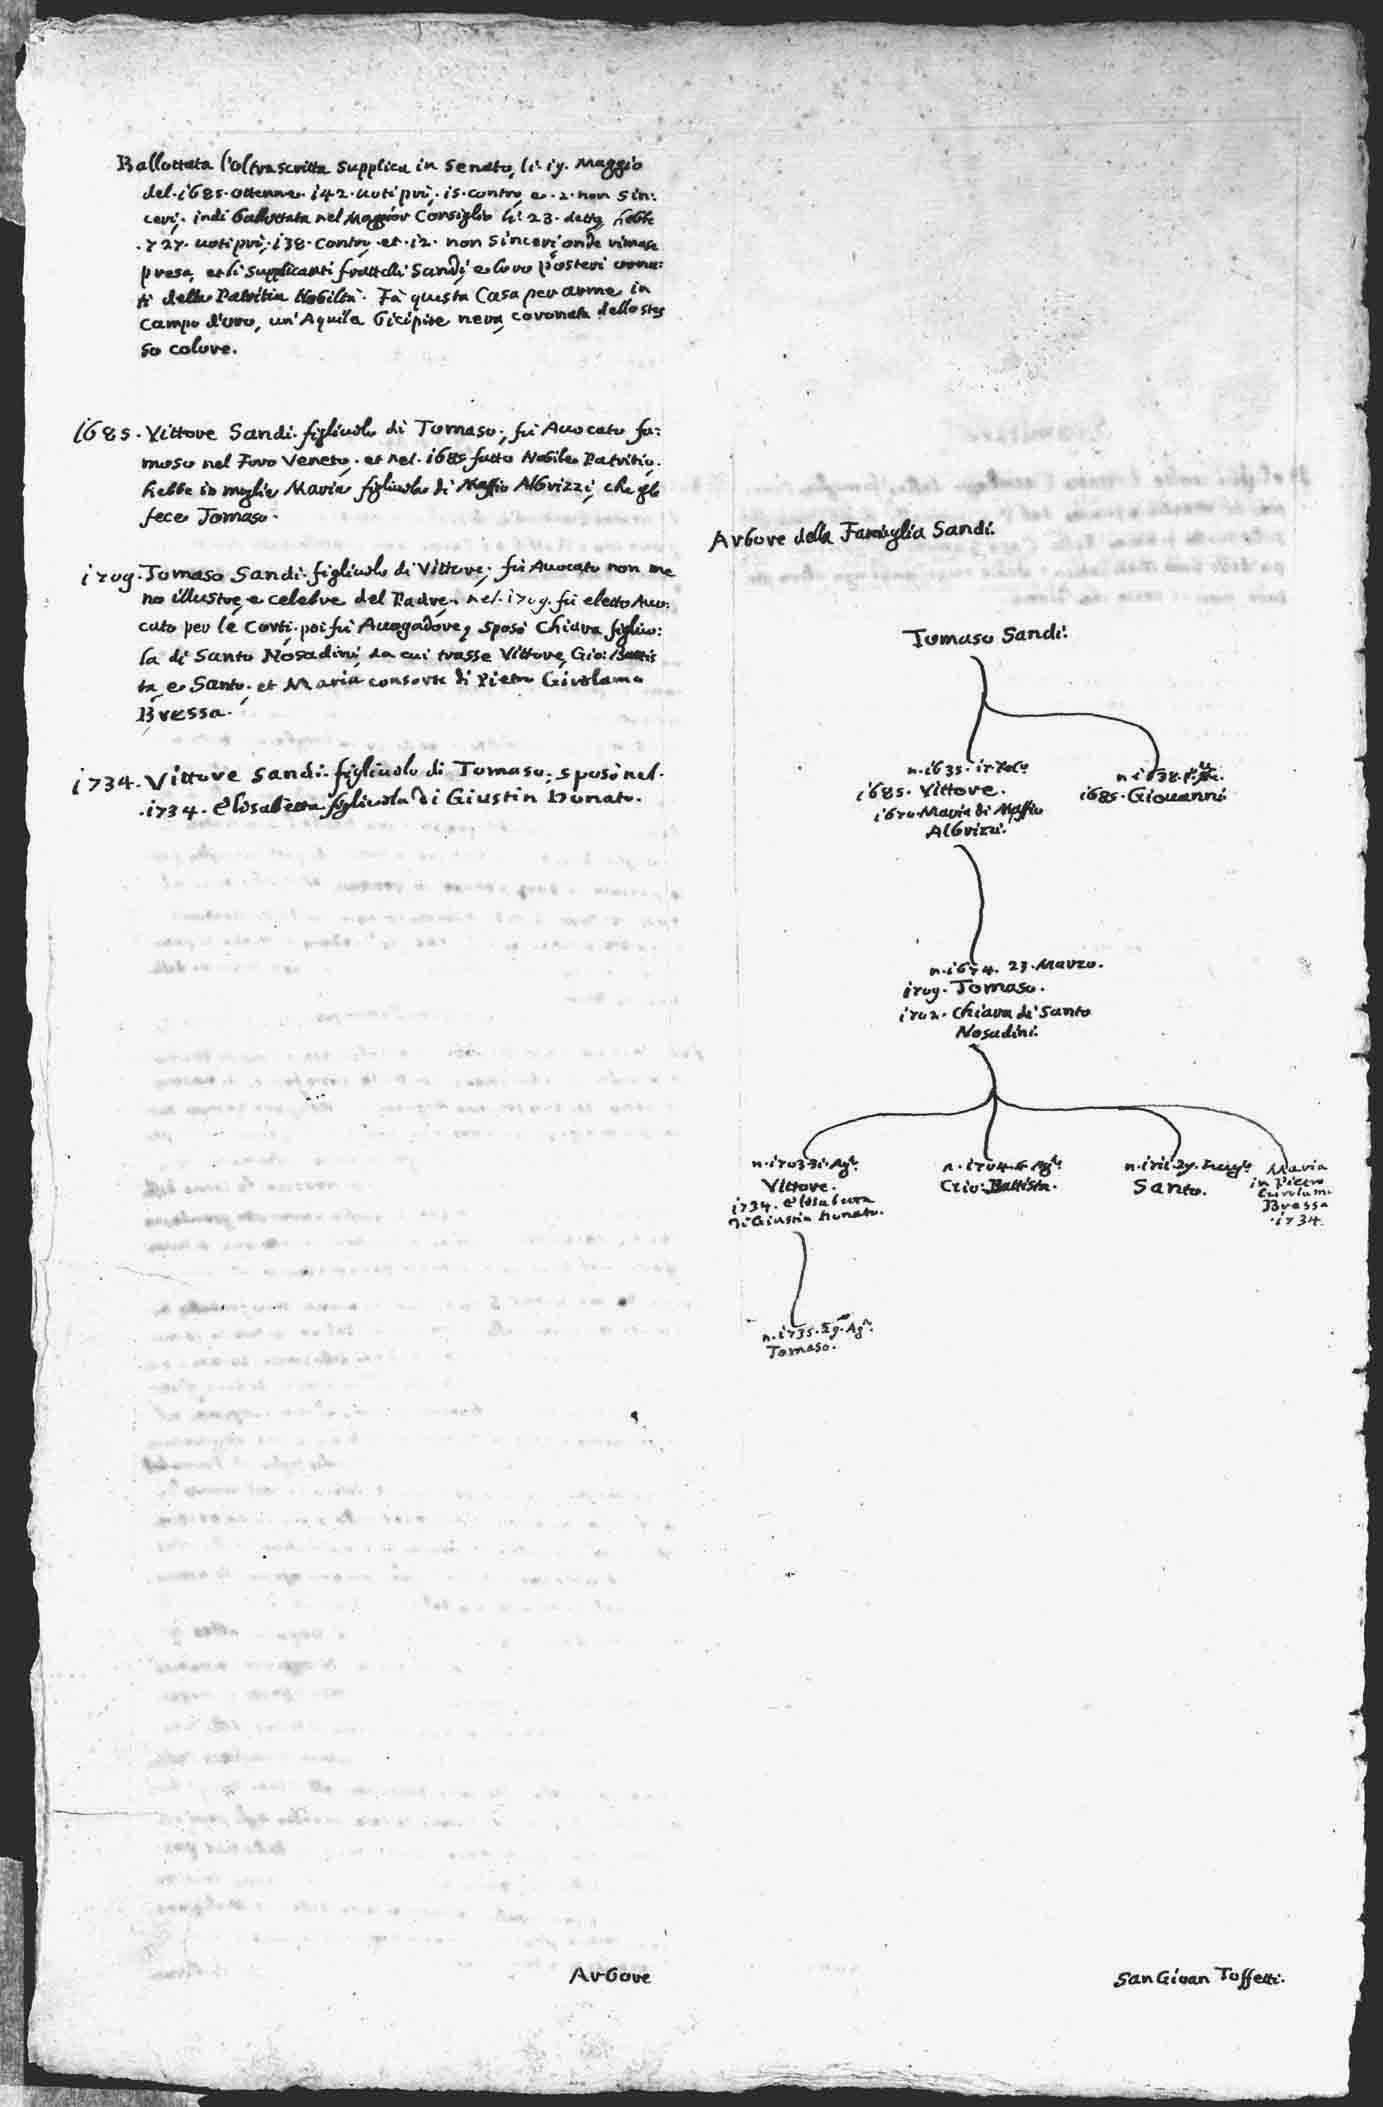 Ballottata l'oltrascritta supplica in Senato, li. 19. Maggio
del. 1685. ottenne. 142. uoti prò, 15. contro, e. 2. non sin:
ceri, indi ballottata nel Maggior Consiglio li. 23. detto, hebbe
.727. uoti prò, 138. contro, et. 12. non sinceri, onde rimase
presa, et li supplicanti frattelli Sandi, e loro posteri orna:
ti della Patritia Nobiltà. Fà questa Casa per arme in
campo d'oro, un'Aquila bicipite nera, coronata dello stes
so colore.
1685. Vittore Sandi. figliuolo di Tomaso, fù Auocato fa:
moso nel Foro Veneto, et nel. 1685 fatto Nobile Patritio.
hebbe in moglie Maria figliuola di Maffio Albrizzi, che gli
fece Tomaso.
1709. Tomaso Sandi. figliuolo di Vittore, fù Auocato non me
no illustre, e celebre del Padre, nel. 1709. fù eletto Auo:
cato per le Corti. poi fù Auogadore, sposò Chiara figliuo:
la di Santo Nosadini, da cui trasse Vittore, Gio: Battis
ta, e Santo, et Maria consorte di Pietro Girolamo
Bressa.
1734. Vittore Sandi. figliuolo di Tomaso, sposò nel.
.1734. Elisabetta figliuola di Giustin Donato.
Arbore
Arbore della Famiglia Sandi.
Tomaso Sandi.
n. 1635. 17.
1685. Vittore.
1670. Maria di Maffio
Albrizzi.
n. 1638.
1685. Giouanni.
n. 1674. 23. Marzo.
1709. Tomaso.
1702. Chiara di Santo
Nosadini.
n. 1703. 31. Agto.
Vittore.
1734. Elisabetta
di Giustin Donato.
n. 1704. Agto.
Gio: Battista.
n. 1711. 29.
Santo.
Maria
in Pietro
Girolamo
Bressa
.1734.
n. 1735. Agto.
Tomaso.
San Giouan Toffetti.